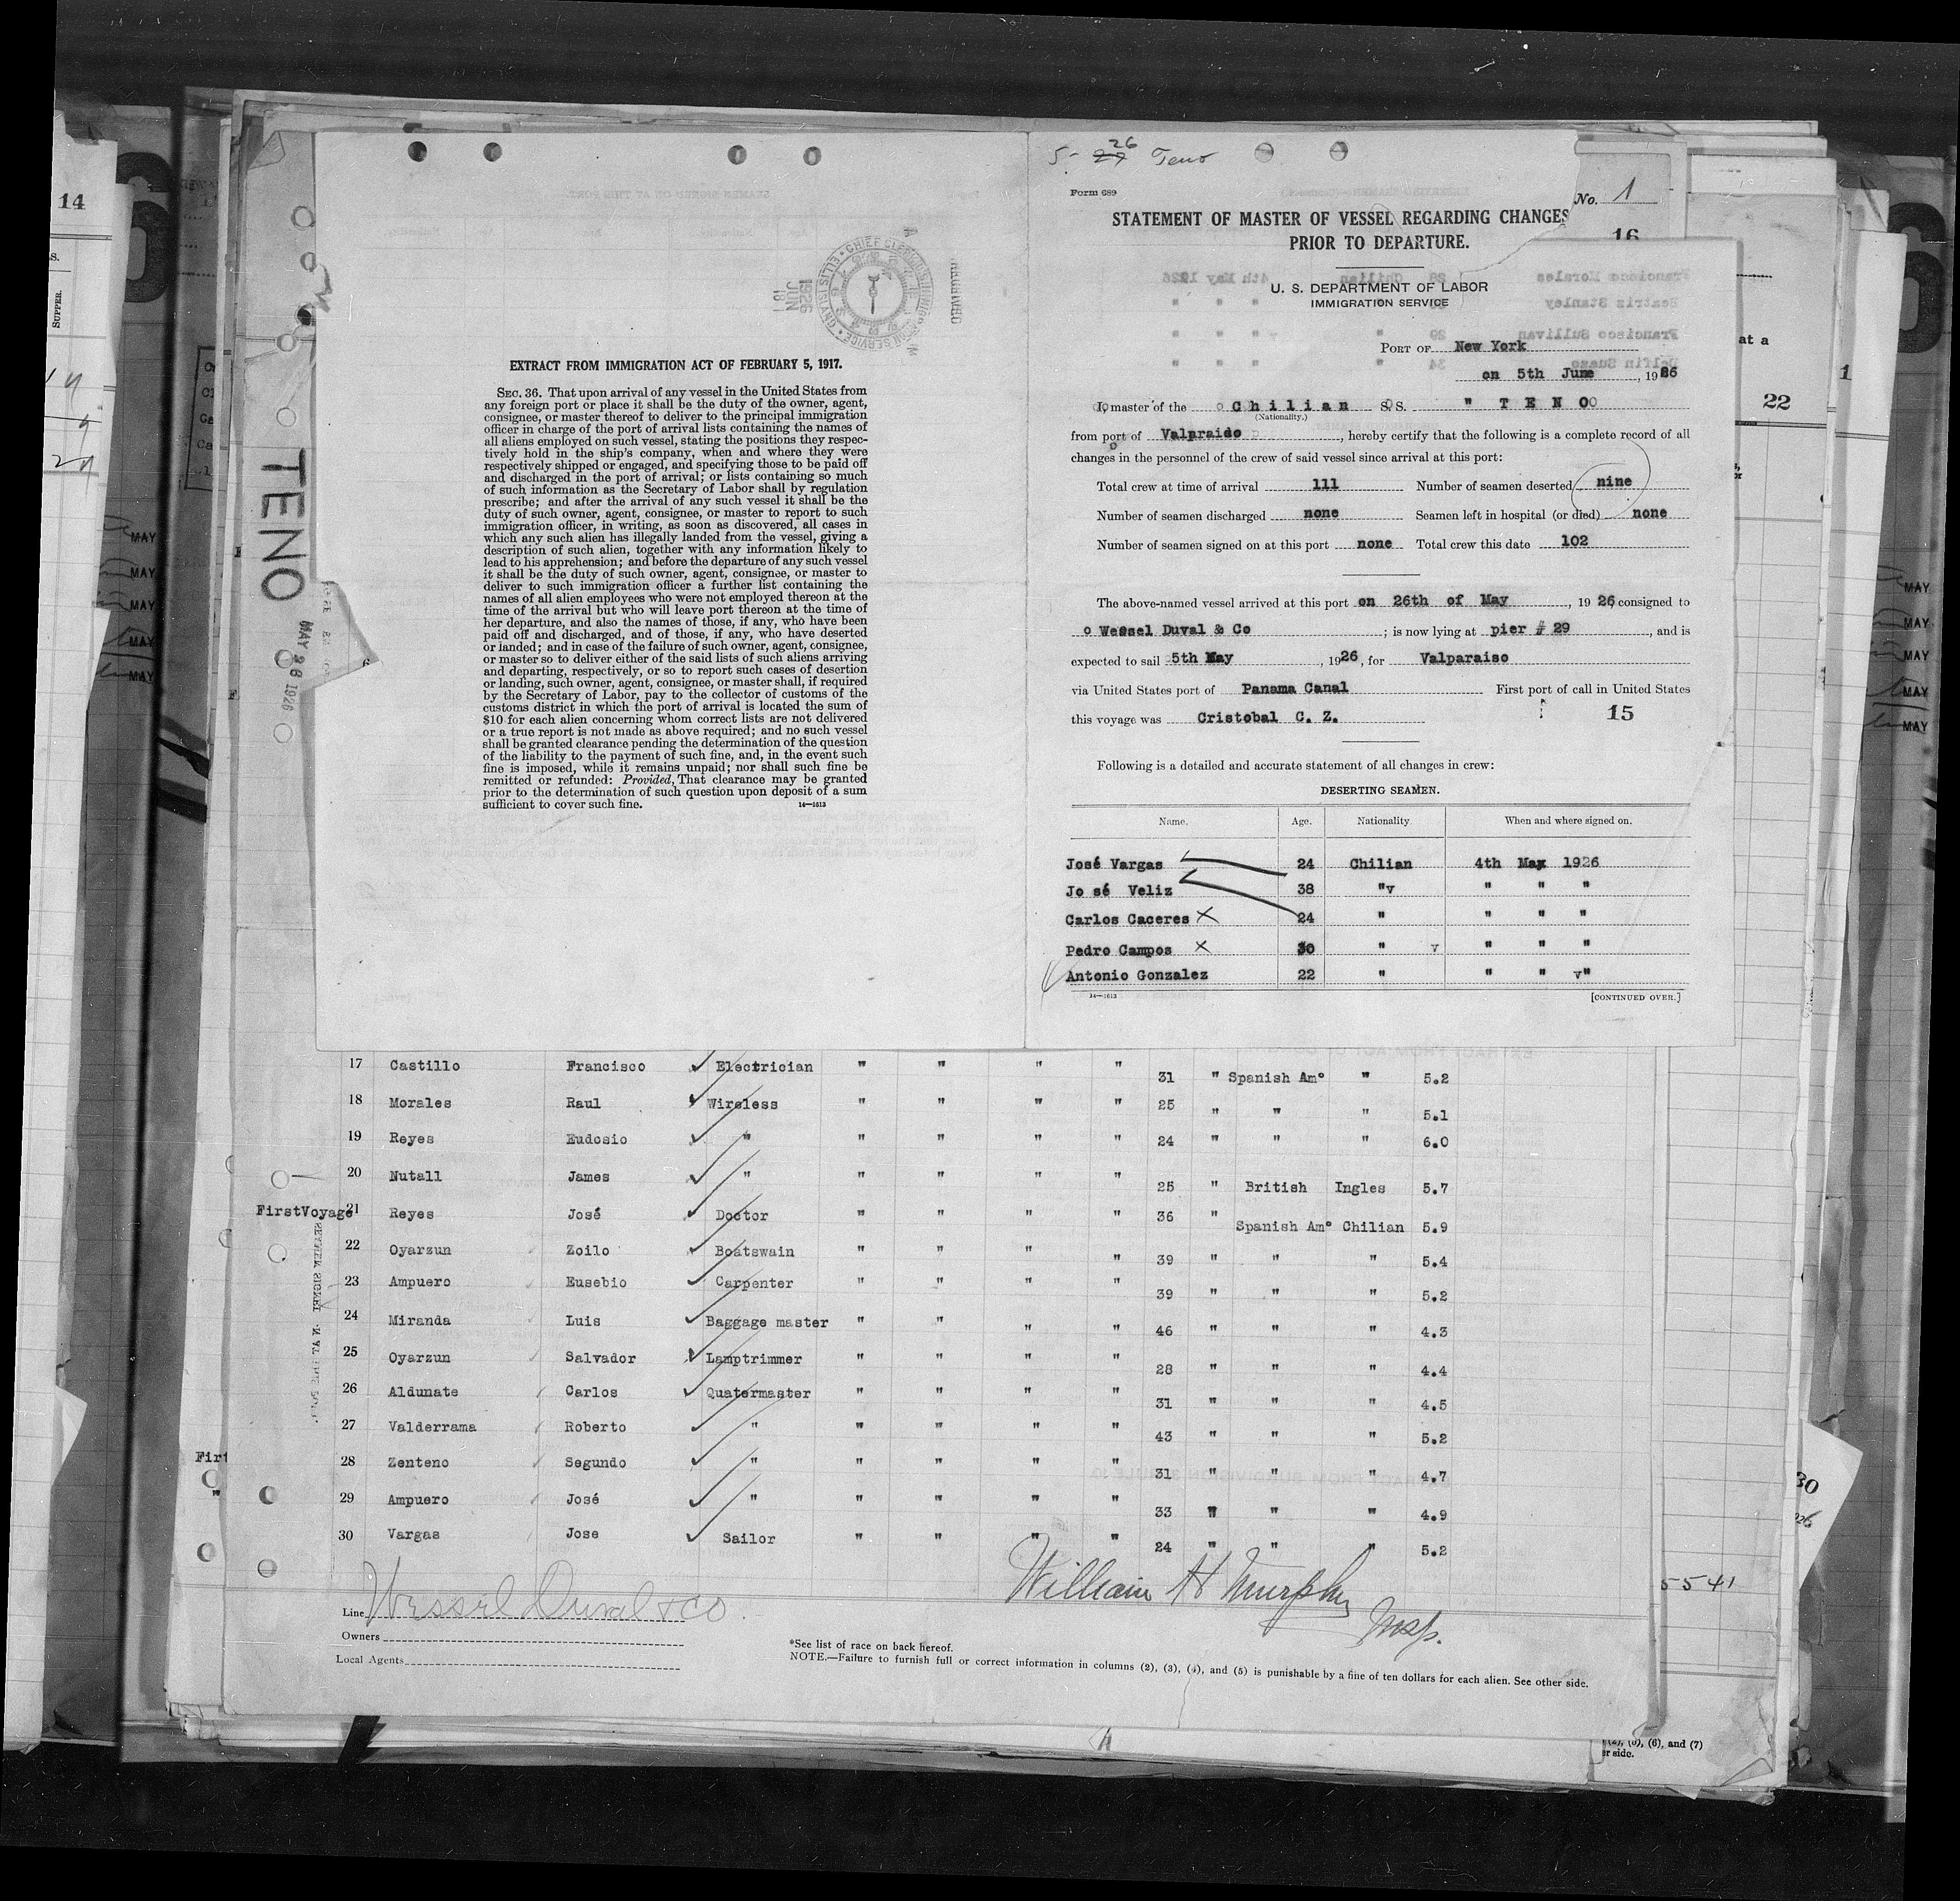 14
SUPPER.
TENO
MAY 26 1926
EXTRACT FROM IMMIGRATION ACT OF FEBRUARY 5, 1917.
SEC. 36. That upon arrival of any vessel in the United States from
any foreign port or place it shall be the duty of the owner, agent,
consignee, or master thereof to deliver to the principal immigration
officer in charge of the port of arrival lists containing the names of
all aliens employed on such vessel, stating the positions they respec-
tively hold in the ship's company, when and where they were
respectively shipped or engaged, and specifying those to be paid off
and discharged in the port of arrival; or lists containing so much
of such information as the Secretary of Labor shall by regulation
prescribe; and after the arrival of any such vessel it shall be the
duty of such owner, agent, consignee, or master to report to such
immigration officer, in writing, as soon as discovered, all cases in
which any such alien has illegally landed from the vessel, giving a
description of such alien, together with any information likely to
lead to his apprehension; and before the departure of any such vessel
it shall be the duty of such owner, agent, consignee, or master to
deliver to such immigration officer a further list containing the
names of all alien employees who were not employed thereon at the
time of the arrival but who will leave port thereon at the time of
her departure, and also the names of those, if any, who have been
paid off and discharged, and of those, if any, who have deserted
or landed; and in case of the failure of such owner, agent, consignee,
or master so to deliver either of the said lists of such aliens arriving
and departing, respectively, or so to report such cases of desertion
or landing, such owner, agent, consignee, or master shall, if required
by the Secretary of Labor, pay to the collector of customs of the
customs district in which the port of arrival is located the sum of
$10 for each alien concerning whom correct lists are not delivered
or a true report is not made as above required; and no such vessel
shall be granted clearance pending the determination of the question
of the liability to the payment of such fine, and, in the event such
fine is imposed, while it remains unpaid; nor shall such fine be
remitted or refunded: Provided, That clearance may be granted
prior to the determination of such question upon deposit of a sum
sufficient to cover such fine. 14—1613
5- 27 26 Teno
Form 689
No. 1
16
STATEMENT OF MASTER OF VESSEL REGARDING CHANGES
PRIOR TO DEPARTURE.
U. S. DEPARTMENT OF LABOR
IMMIGRATION SERVICE
PORT OF New York
on 5th June, 1926
I, master of the Chilian S.S. " TENO
(Nationality.)
from port of Valpraido, hereby certify that the following is a complete record of all
changes in the personnel of the crew of said vessel since arrival at this port:
Total crew at time of arrival 111 Number of seamen deserted nine
Number of seamen discharged none Seamen left in hospital (or died) none
Number of seamen signed on at this port none Total crew this date 102
The above-named vessel arrived at this port on 26th of May, 1926 consigned to
Wessel Duval & Co; is now lying at pier # 29, and is
expected to sail 5th May, 1926, for Valparaiso
via United States port of Panama Canal First port of call in United States
this voyage was Cristobal C. Z. 15
Following is a detailed and accurate statement of all changes in crew:
DESERTING SEAMEN.
Name. Age. Nationality. When and where signed on.
José Vargas 24 Chilian 4th May 1926
Jo sé Veliz 38 "v " " "
Carlos Caceres X 24 " " " "
Pedro Campos X 30 " v " " "
Antonio Gonzalez 22 " " " v"
14—1613 [CONTINUED OVER.]
at a
22
17 Castillo Francisco Electrician " " " " 31 " Spanish Am° " 5.2
18 Morales Raul Wireless " " " " 25 " " " 5.1
19 Reyes Eudosio " " " " " 24 " " " 6.0
20 Nutall James " " " " " 25 " British Ingles 5.7
FirstVoyage 21 Reyes José Doctor " " " " 36 " Spanish Am° Chilian 5.9
22 Oyarzun Zoilo Boatswain " " " " 39 " " " 5.4
23 Ampuero Eusebio Carpenter " " " " 39 " " " 5.2
24 Miranda Luis Baggage master " " " " 46 " " " 4.3
25 Oyarzun Salvador Lamptrimmer " " " " 28 " " " 4.4
26 Aldunate Carlos Quatermaster " " " " 31 " " " 4.5
27 Valderrama Roberto " " " " " 43 " " " 5.2
28 Zenteno Segundo " " " " " 31 " " " 4.7
29 Ampuero José " " " " " 33 " " " 4.9
30 Vargas Jose Sailor " " " " 24 " " " 5.2
William H Murphy
Insp.
Line Wessel Duval & Co.
Owners
Local Agents
*See list of race on back hereof.
NOTE.—Failure to furnish full or correct information in columns (2), (3), (4), and (5) is punishable by a fine of ten dollars for each alien. See other side.
5541
(6), and (7)
er side.